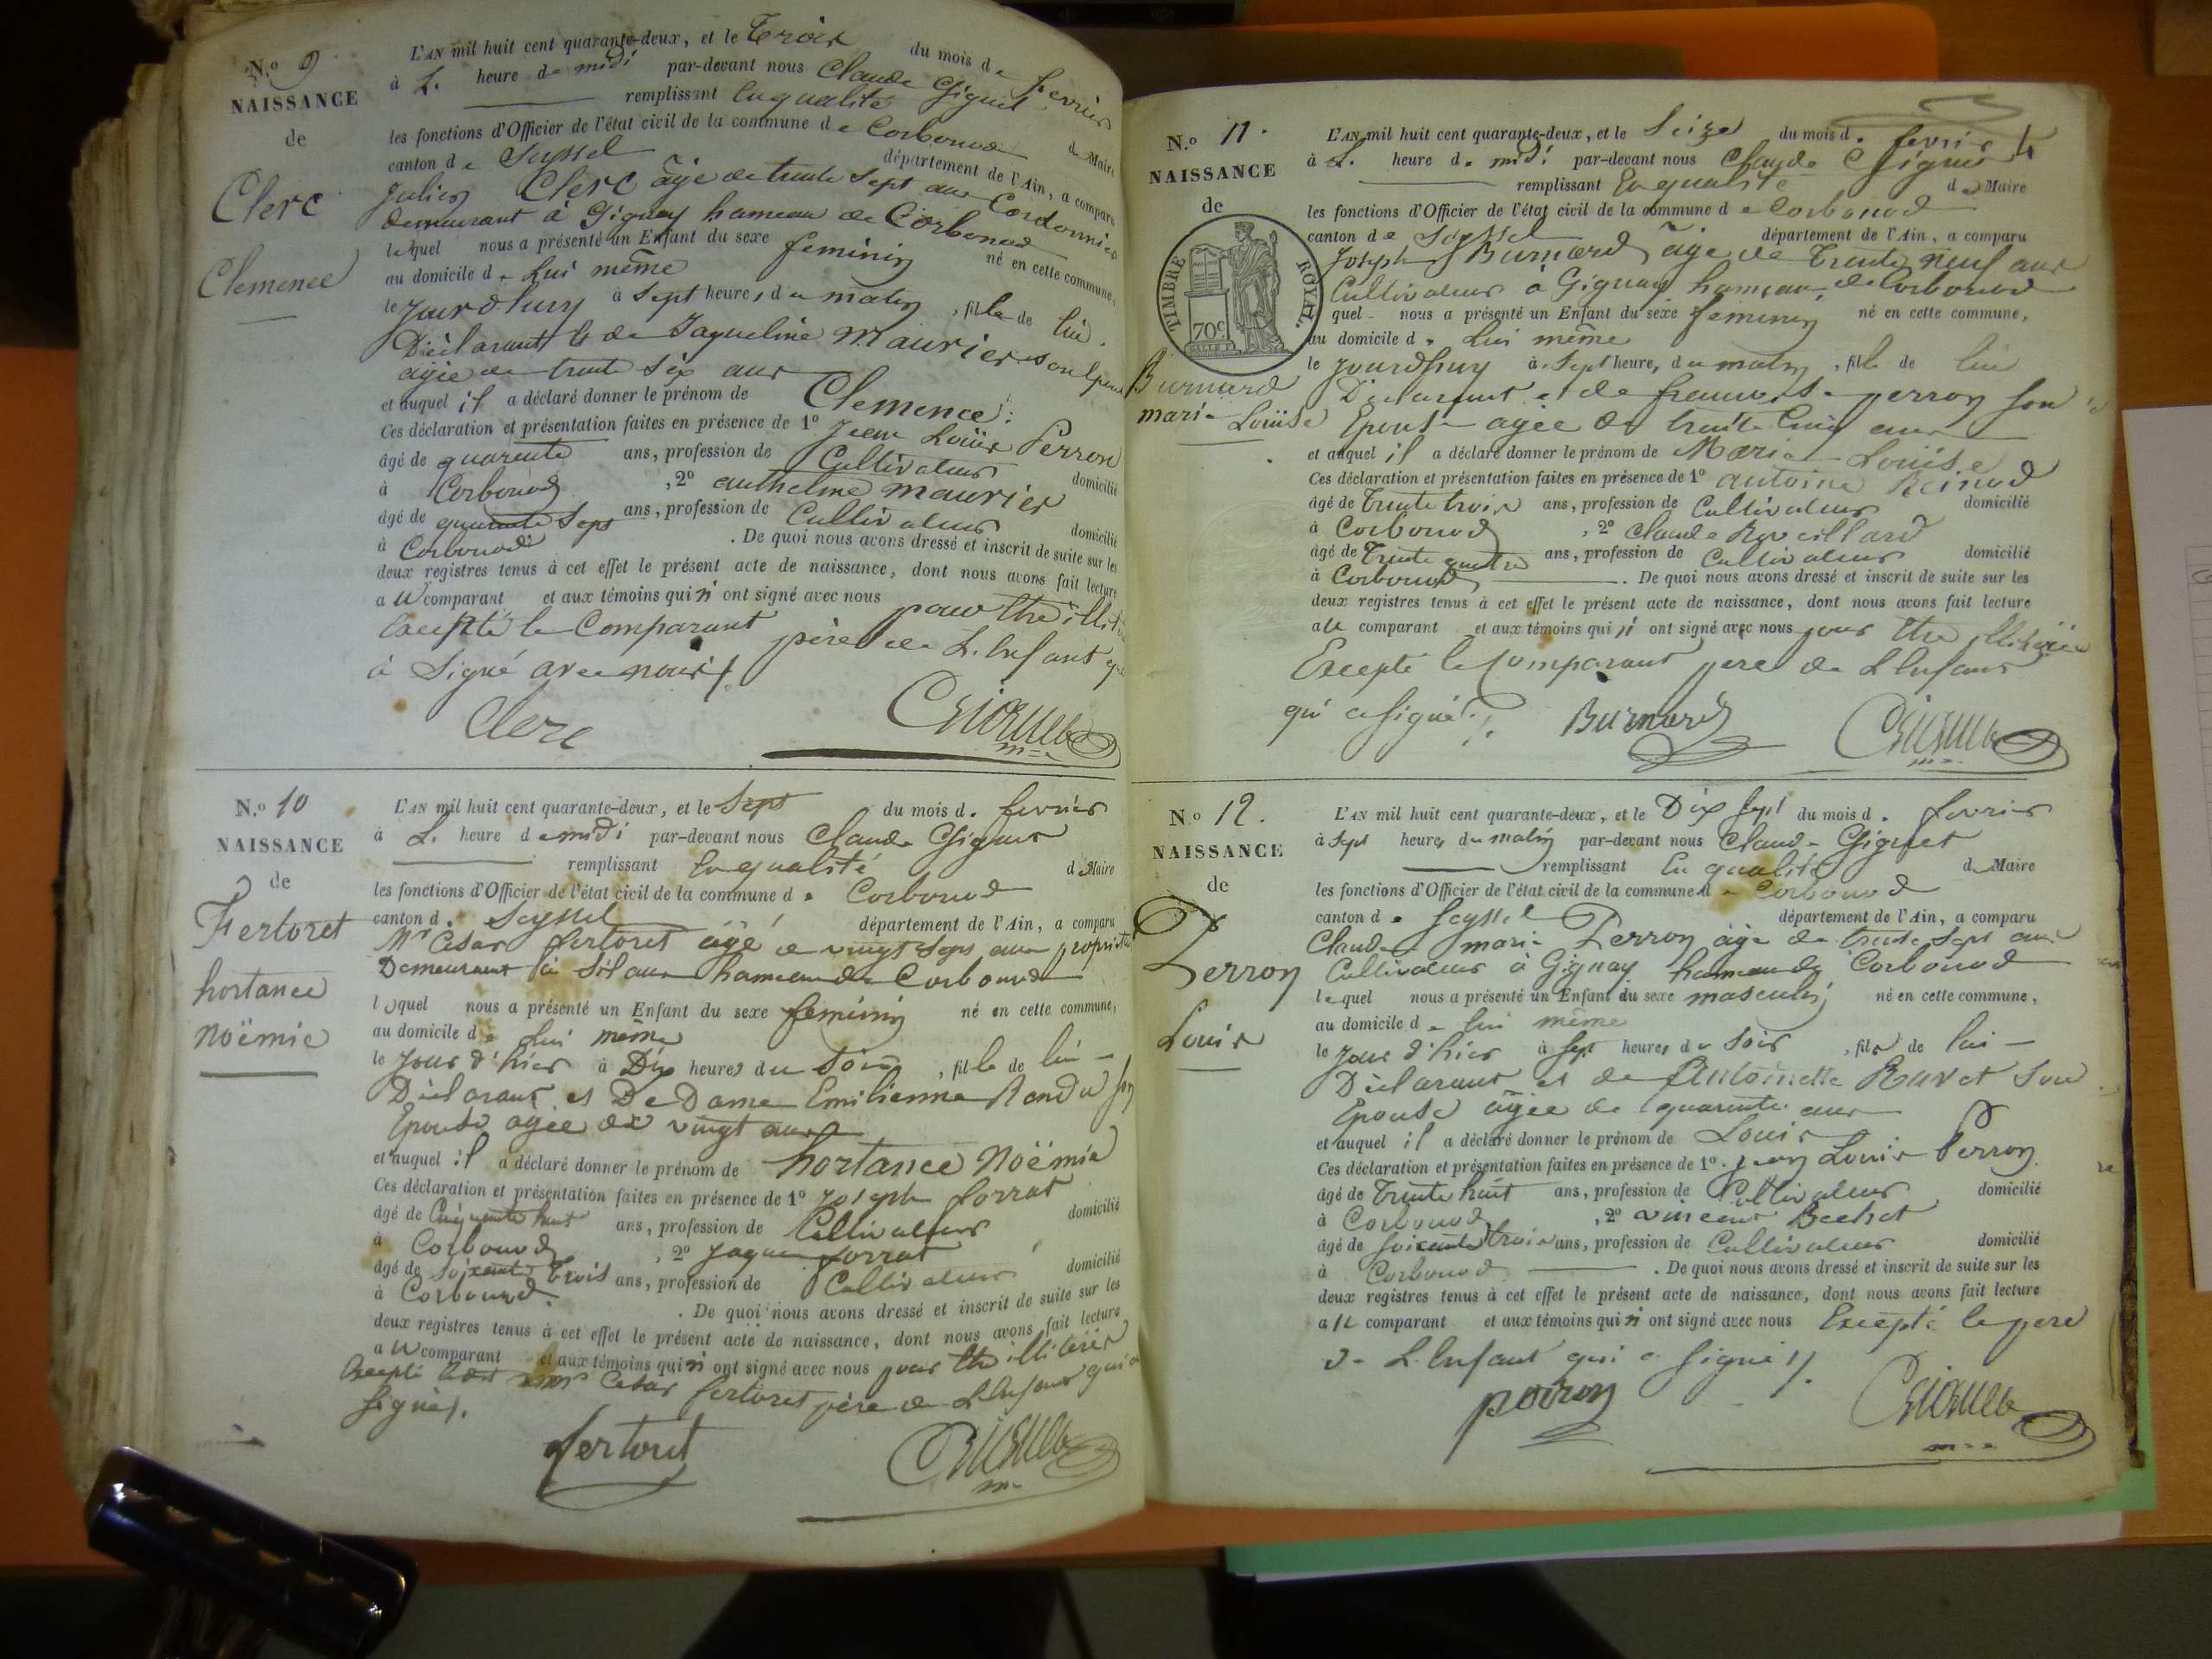 N.o 9
NAISSANCE
de
Clerc
Clemence
L'AN mil huit cent quarante-deux, et le Trois du mois de fevrier
à L. heure de midi par-devant nous Claude Giguet
remplissant En qualité de Maire
les fonctions d'Officier de l'état civil de la commune de Corbonod
canton de Seyssel département de l'Ain, a comparu
Julien Clerc âgé de trente sept ans Cordonnier
demeurant à Gignay hameau de Corbonod
lequel nous a présenté un Enfant du sexe feminin né en cette commune,
au domicile de Lui même
le Jourdhuy à Sept heures du matin, fille de lui
Déclarant & de Jaqueline Maurier son Epouse
agée de trente Six ans
et auquel il a déclaré donner le prénom de Clemence
Ces déclaration et présentation faites en présence de 1o Jean Louis Perron
âgé de quarente ans, profession de Cultivateur domicilié
à Corbonod, 2o anthelme maurier
âgé de quarente Sept ans, profession de Cultivateur domicilié
à Corbonod. De quoi nous avons dressé et inscrit de suite sur les
deux registres tenus à cet effet le présent acte de naissance, dont nous avons fait lecture
au comparant et aux témoins qui n'ont signé avec nous pour être
Excepté le Comparant père de L'Enfant qui
à Signé avec nous
Clerc
CGiguet
N.o 10
NAISSANCE
de
Fertoret
hortance
Noëmie
L'AN mil huit cent quarante-deux, et le Sept du mois de fevrier
à L. heure de midi par-devant nous Claude Giguet
remplissant En qualité de Maire
les fonctions d'Officier de l'état civil de la commune de Corbonod
canton de Seyssel département de l'Ain, a comparu
Mr César fertoret âgé de vingt Sept ans
Demeurant à Silans hameau de Corbonod
lequel nous a présenté un Enfant du sexe feminin né en cette commune,
au domicile de Lui même
le Jour d'hier à Dix heures du Soir, fille de lui
Déclarant et De Dame Emilienne Rendu son
Epouse agée de vingt ans
et auquel il a déclaré donner le prénom de hortance Noëmie
Ces déclaration et présentation faites en présence de 1o Joseph forrat
âgé de Cinquante huit ans, profession de Cultivateur domicilié
à Corbonod, 2o Jaque forrat
âgé de Soixante Trois ans, profession de Cultivateur domicilié
à Corbonod. De quoi nous avons dressé et inscrit de suite sur les
deux registres tenus à cet effet le présent acte de naissance, dont nous avons fait lecture
au comparant et aux témoins qui n'ont signé avec nous pour être
Excepté Cesar fertoret père de L'Enfant qui a
Signé
fertoret
CGiguet
N.o 11.
NAISSANCE
de
TIMBRE ROYAL.
70c
Burnard
marie Louise
L'AN mil huit cent quarante-deux, et le Seize du mois de fevrier 4
à L. heure de midi par-devant nous Claude Giguet
remplissant En qualité de Maire
les fonctions d'Officier de l'état civil de la commune de Corbonod
canton de Seyssel département de l'Ain, a comparu
Joseph Burnard âgé de Trente neuf ans
Cultivateur à Gignay hameau de Corbonod
quel nous a présenté un Enfant du sexe feminin né en cette commune,
au domicile de Lui même
le Jourdhuy à Sept heure, du matin, fille de lui
Déclarant et de francoise perron son
Epouse agée de trente Cinq ans
et auquel il a déclaré donner le prénom de Marie Louise
Ces déclaration et présentation faites en présence de 1o antoine Reinod
âgé de Trente trois ans, profession de Cultivateur domicilié
à Corbonod, 2o Claude
âgé de Trente quatre ans, profession de Cultivateur domicilié
à Corbonod. De quoi nous avons dressé et inscrit de suite sur les
deux registres tenus à cet effet le présent acte de naissance, dont nous avons fait lecture
au comparant et aux témoins qui n'ont signé avec nous pour être
Excepté le Comparant pere de L'Enfant
qui a signé
Burnard
CGiguet
N.o 12.
NAISSANCE
de
Perron
Louis
L'AN mil huit cent quarante-deux, et le Dix Sept du mois de fevrier
à Sept heures du matin par-devant nous Claude Giguet
remplissant En qualité de Maire
les fonctions d'Officier de l'état civil de la commune de Corbonod
canton de Seyssel département de l'Ain, a comparu
Claude marie Perron âgé de trente Sept ans
Cultivateur à Gignay hameau de Corbonod
lequel nous a présenté un Enfant du sexe masculin né en cette commune,
au domicile de Lui même
le Jour d'hier à Sept heures du Soir, fils de lui
Déclarant et de Antoinette Ravet Son
Epouse âgée de quarente ans
et auquel il a déclaré donner le prénom de Louis
Ces déclaration et présentation faites en présence de 1o. Jean Louis Perron
âgé de Trente huit ans, profession de Cultivateur domicilié
à Corbonod, 2o vincent Bechet
âgé de Soixante trois ans, profession de Cultivateur domicilié
à Corbonod. De quoi nous avons dressé et inscrit de suite sur les
deux registres tenus à cet effet le présent acte de naissance, dont nous avons fait lecture
au comparant et aux témoins qui n'ont signé avec nous Excepté le pere
de L'Enfant qui a Signé
perron
CGiguet